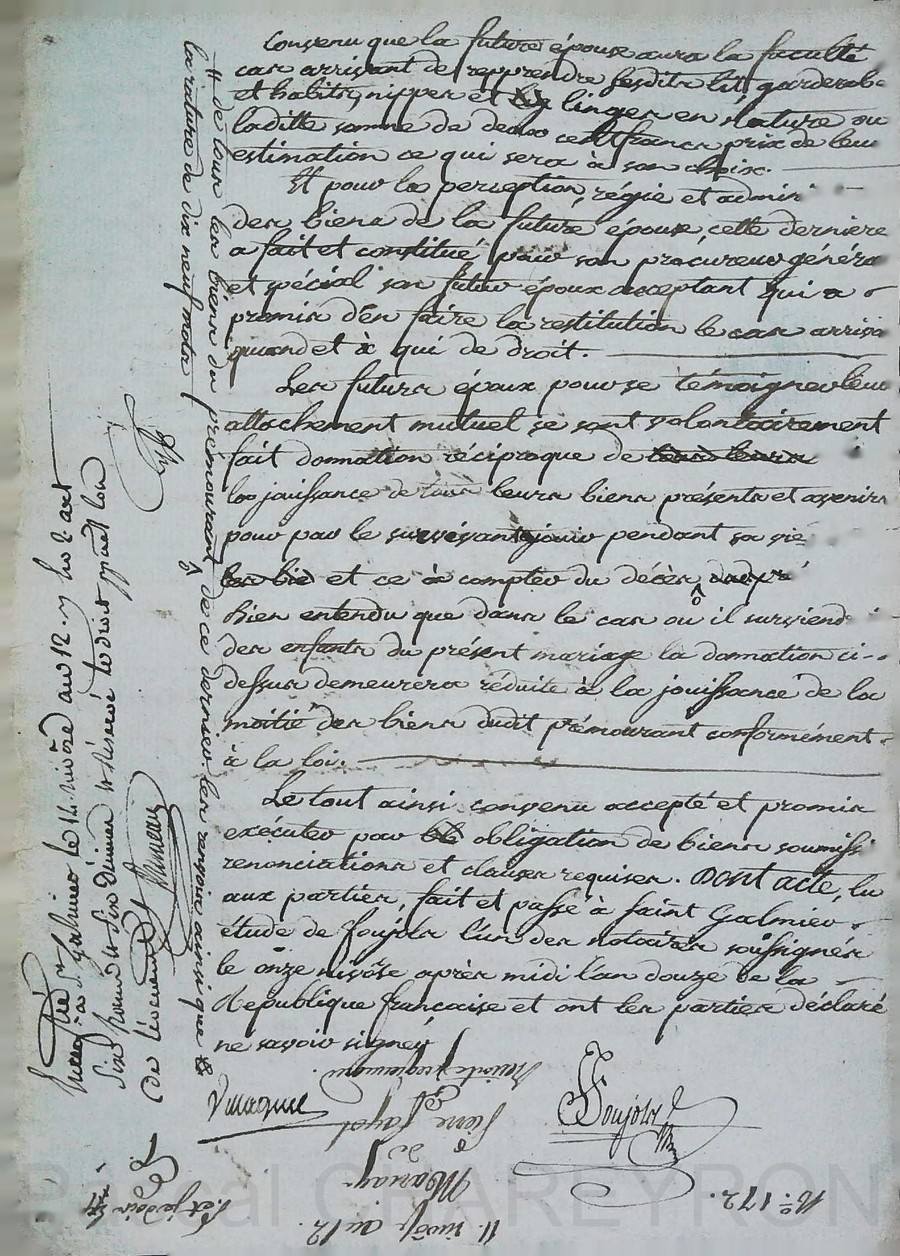 Convenu que la future épouse aura la faculté
cas arrivant de repprendre sesdits lit, garderobe
et habits, nippes et linges en nature ou
laditte somme de deux cent francs prix de leur
estimation ce qui sera à son choix.
Et pour la perception, régie et admi
des biens de la future épouse, cette derniere
a fait et constitué pour son procureur généra
et spécial son futur époux acceptant qui a
promis d'en faire la restitution le cas arriva
quand et à qui de droit.
Les futurs époux pour se témoigner leur
attachement mutuel se sont volontairement
fait donnation réciproque de tous leurs
la jouissance de tous leurs biens présents et avenirs
pour par le survivant jouir pendant sa vie
les bie et ce à compter du décès du pré
bien entendu que dans le cas ou il surviend
des enfants du présent mariage la donnation ci-
dessus demeurera réduite à la jouissance de la
moitié des biens dudit prémourant conformément
à la loi.
Le tout ainsi convenu accepté et promis
exécuter par obligation de biens soumissi
renonciations et clauses requises. Dont acte, lu
aux parties, fait et passé à saint Galmier
étude de Foujols l'un des notaires soussignés
le onze nivôse après midi l'an douze de la
République française et ont les parties déclaré
ne savoir signer
# de tous les biens du prémourant de ce dernier les renvois ainsi que
la rature de dix neuf mots
à St Galmier le 14 nivôse an 12.
Foujols
Nº. 172.
11. nivôse an 12.
Mariage
de
Pierre Payot